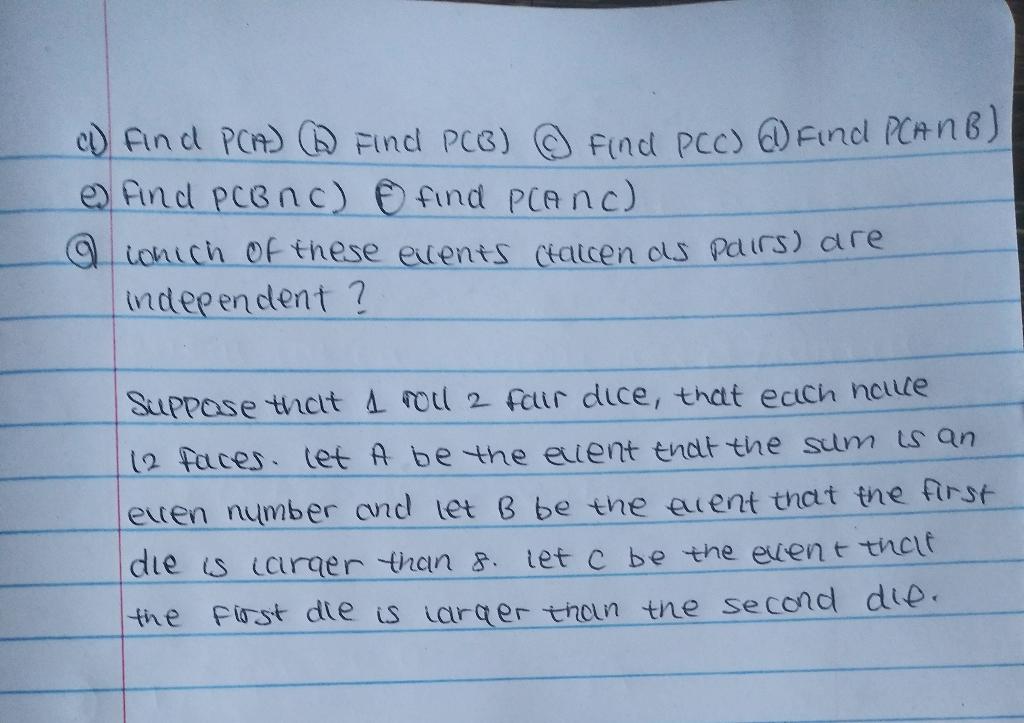 a) Find P(A) (b) Find P(B) (c) Find P(C) (d) Find P(A∩B)
e) Find P(B∩C) (f) find P(A∩C)
(g) which of these events (taken as pairs) are
independent?
Suppose that 1 roll 2 fair dice, that each have
12 faces. let A be the event that the sum is an
even number and let B be the event that the first
die is larger than 8. let C be the event that
the first die is larger than the second die.